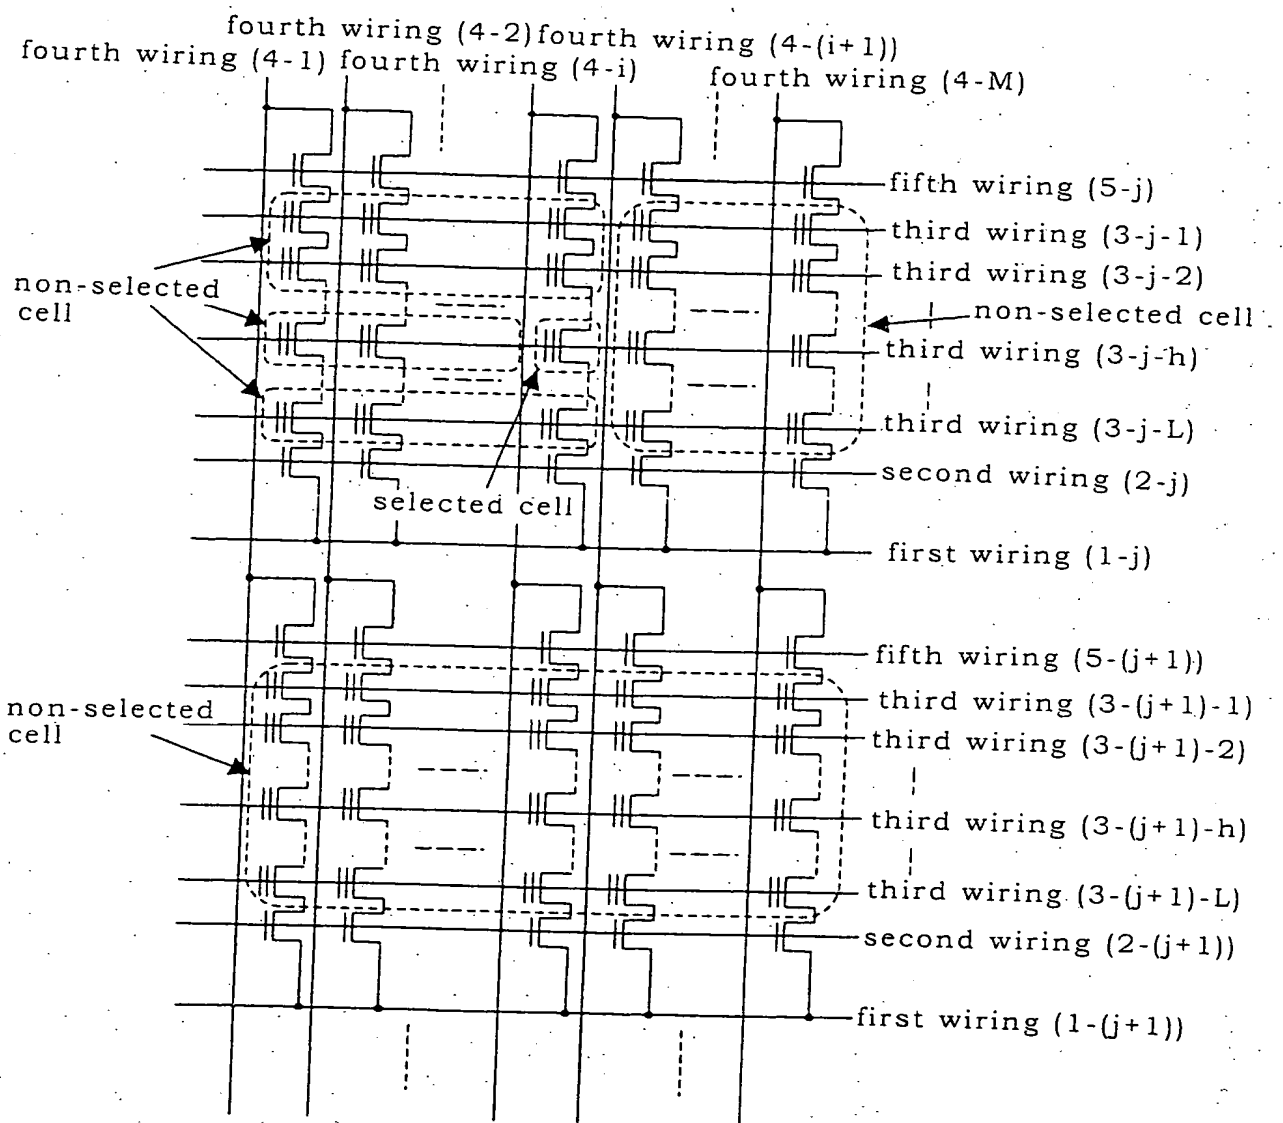 fourth wiring (4-2) fourth wiring (4-(i+1))
fourth wiring (4-1) fourth wiring (4-i)
fourth wiring (4-M)
fifth wiring (5-j)
third wiring (3-j-1)
third wiring (3-j-2)
non-selected
cell
non-selected cell
third wiring (3-j-h)
third wiring (3-j-L)
second wiring (2-j)
selected cell
first wiring (1-j)
fifth wiring (5-(j+1))
third wiring (3-(j+1)-1)
non-selected
cell
third wiring (3-(j+1)-2)
third wiring (3-(j+1)-h)
third wiring (3-(j+1)-L)
second wiring (2-(j+1))
first wiring (1-(j+1))